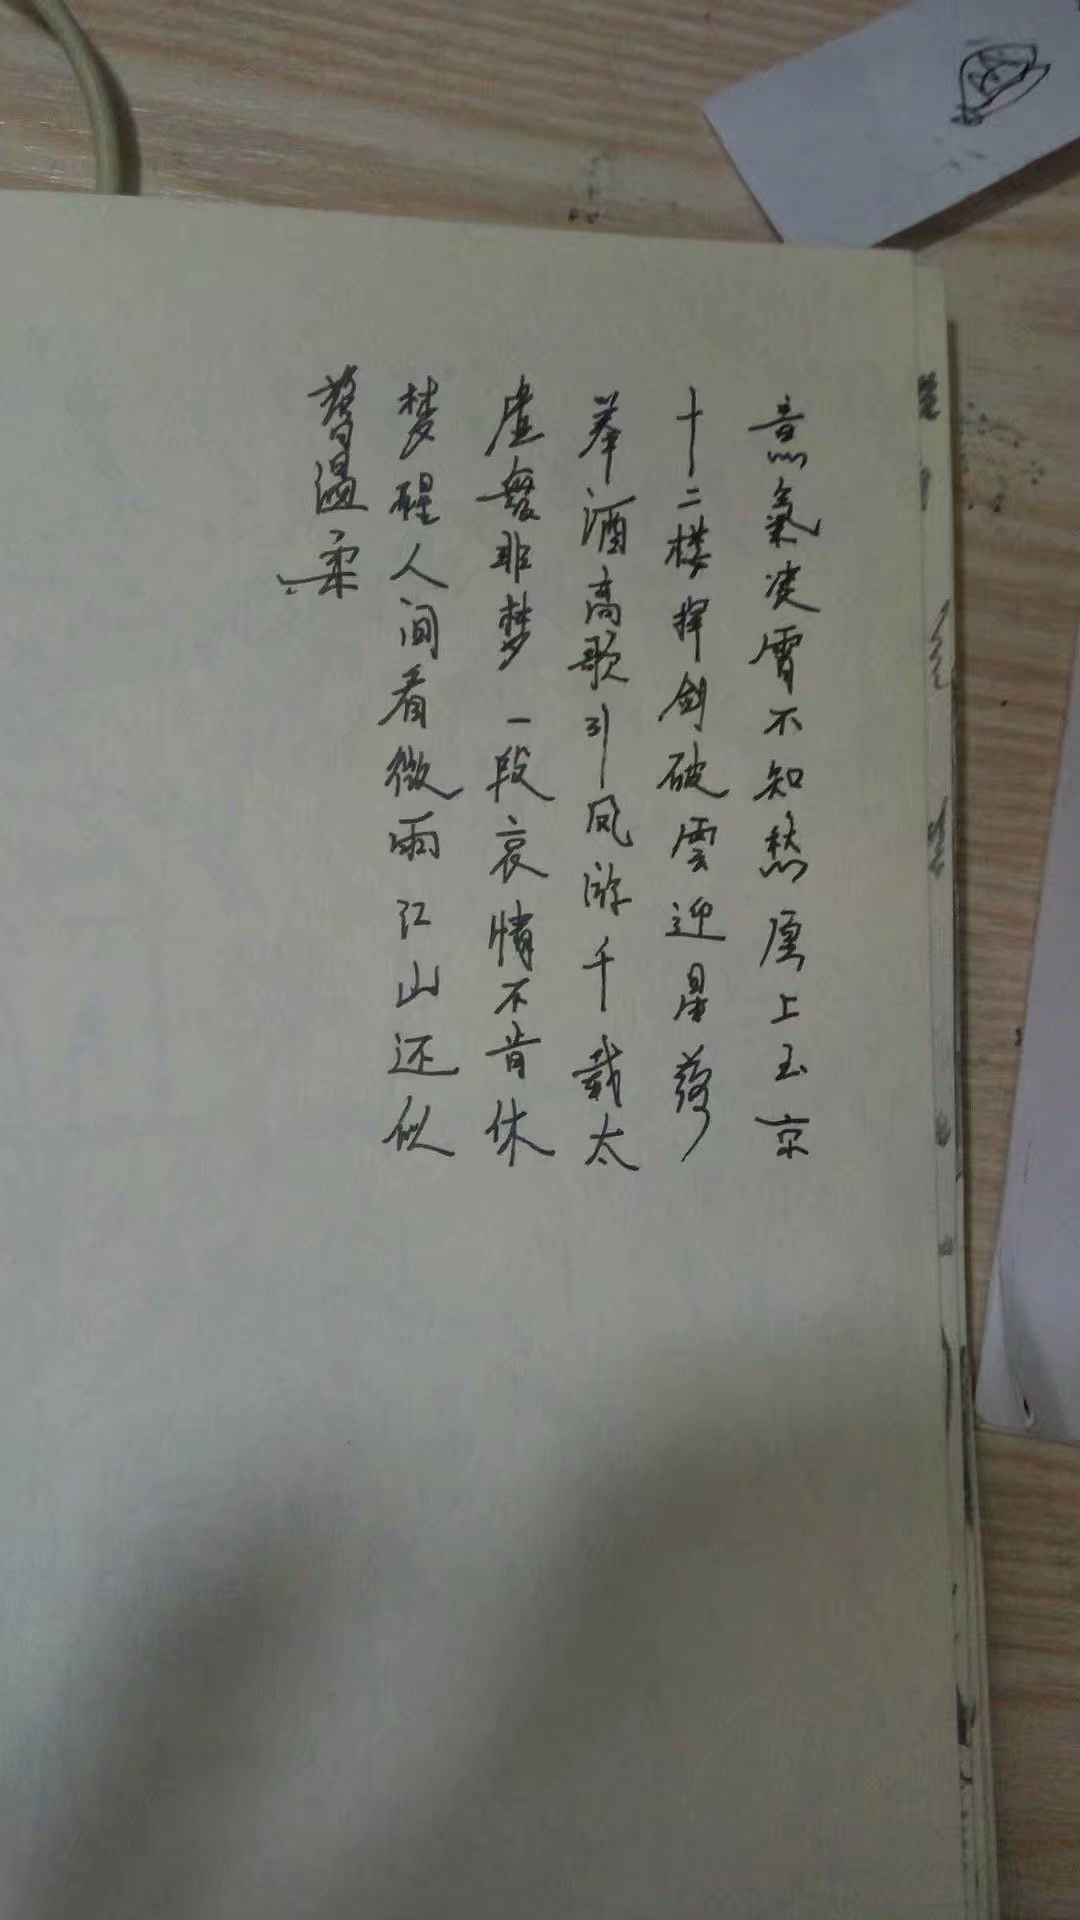 意氣凌霄不知愁愿上玉京
十二楼挥剑破雲迎星落
举酒高歌引凤游千载太
虚無非梦一段哀情不肯休
梦醒人间看微雨江山还似
舊温柔